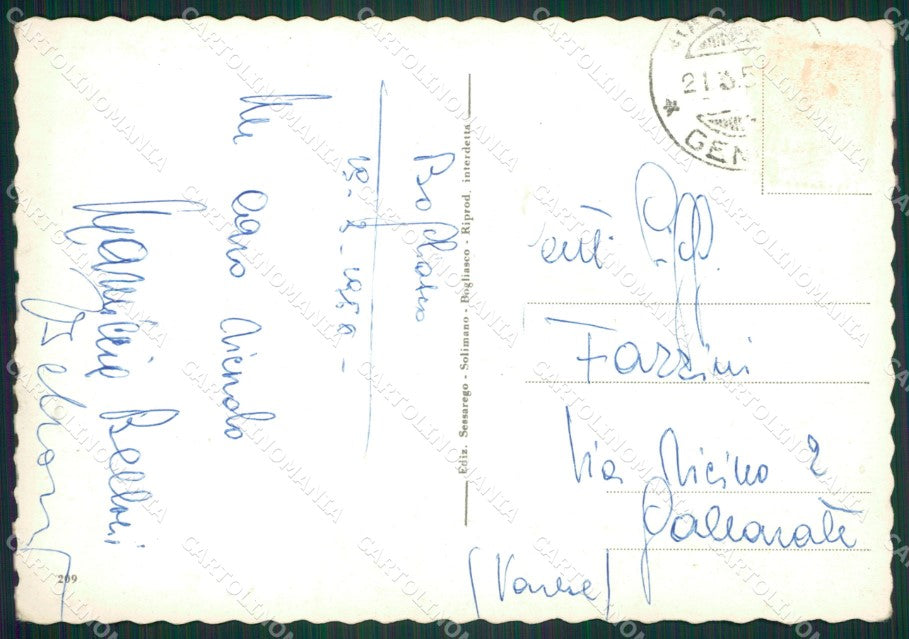 Bogliasco
19-8-1956-
Un caro ricordo
Maruccia Belloni
21.8.5
GEN
Gent. Sigg.
Fazzini
Via Ticino 2
Gallarate
(Varese)
Ediz. Sessarego - Solimano - Bogliasco - Riprod. interdetta
209
CARTOLINOMANIA